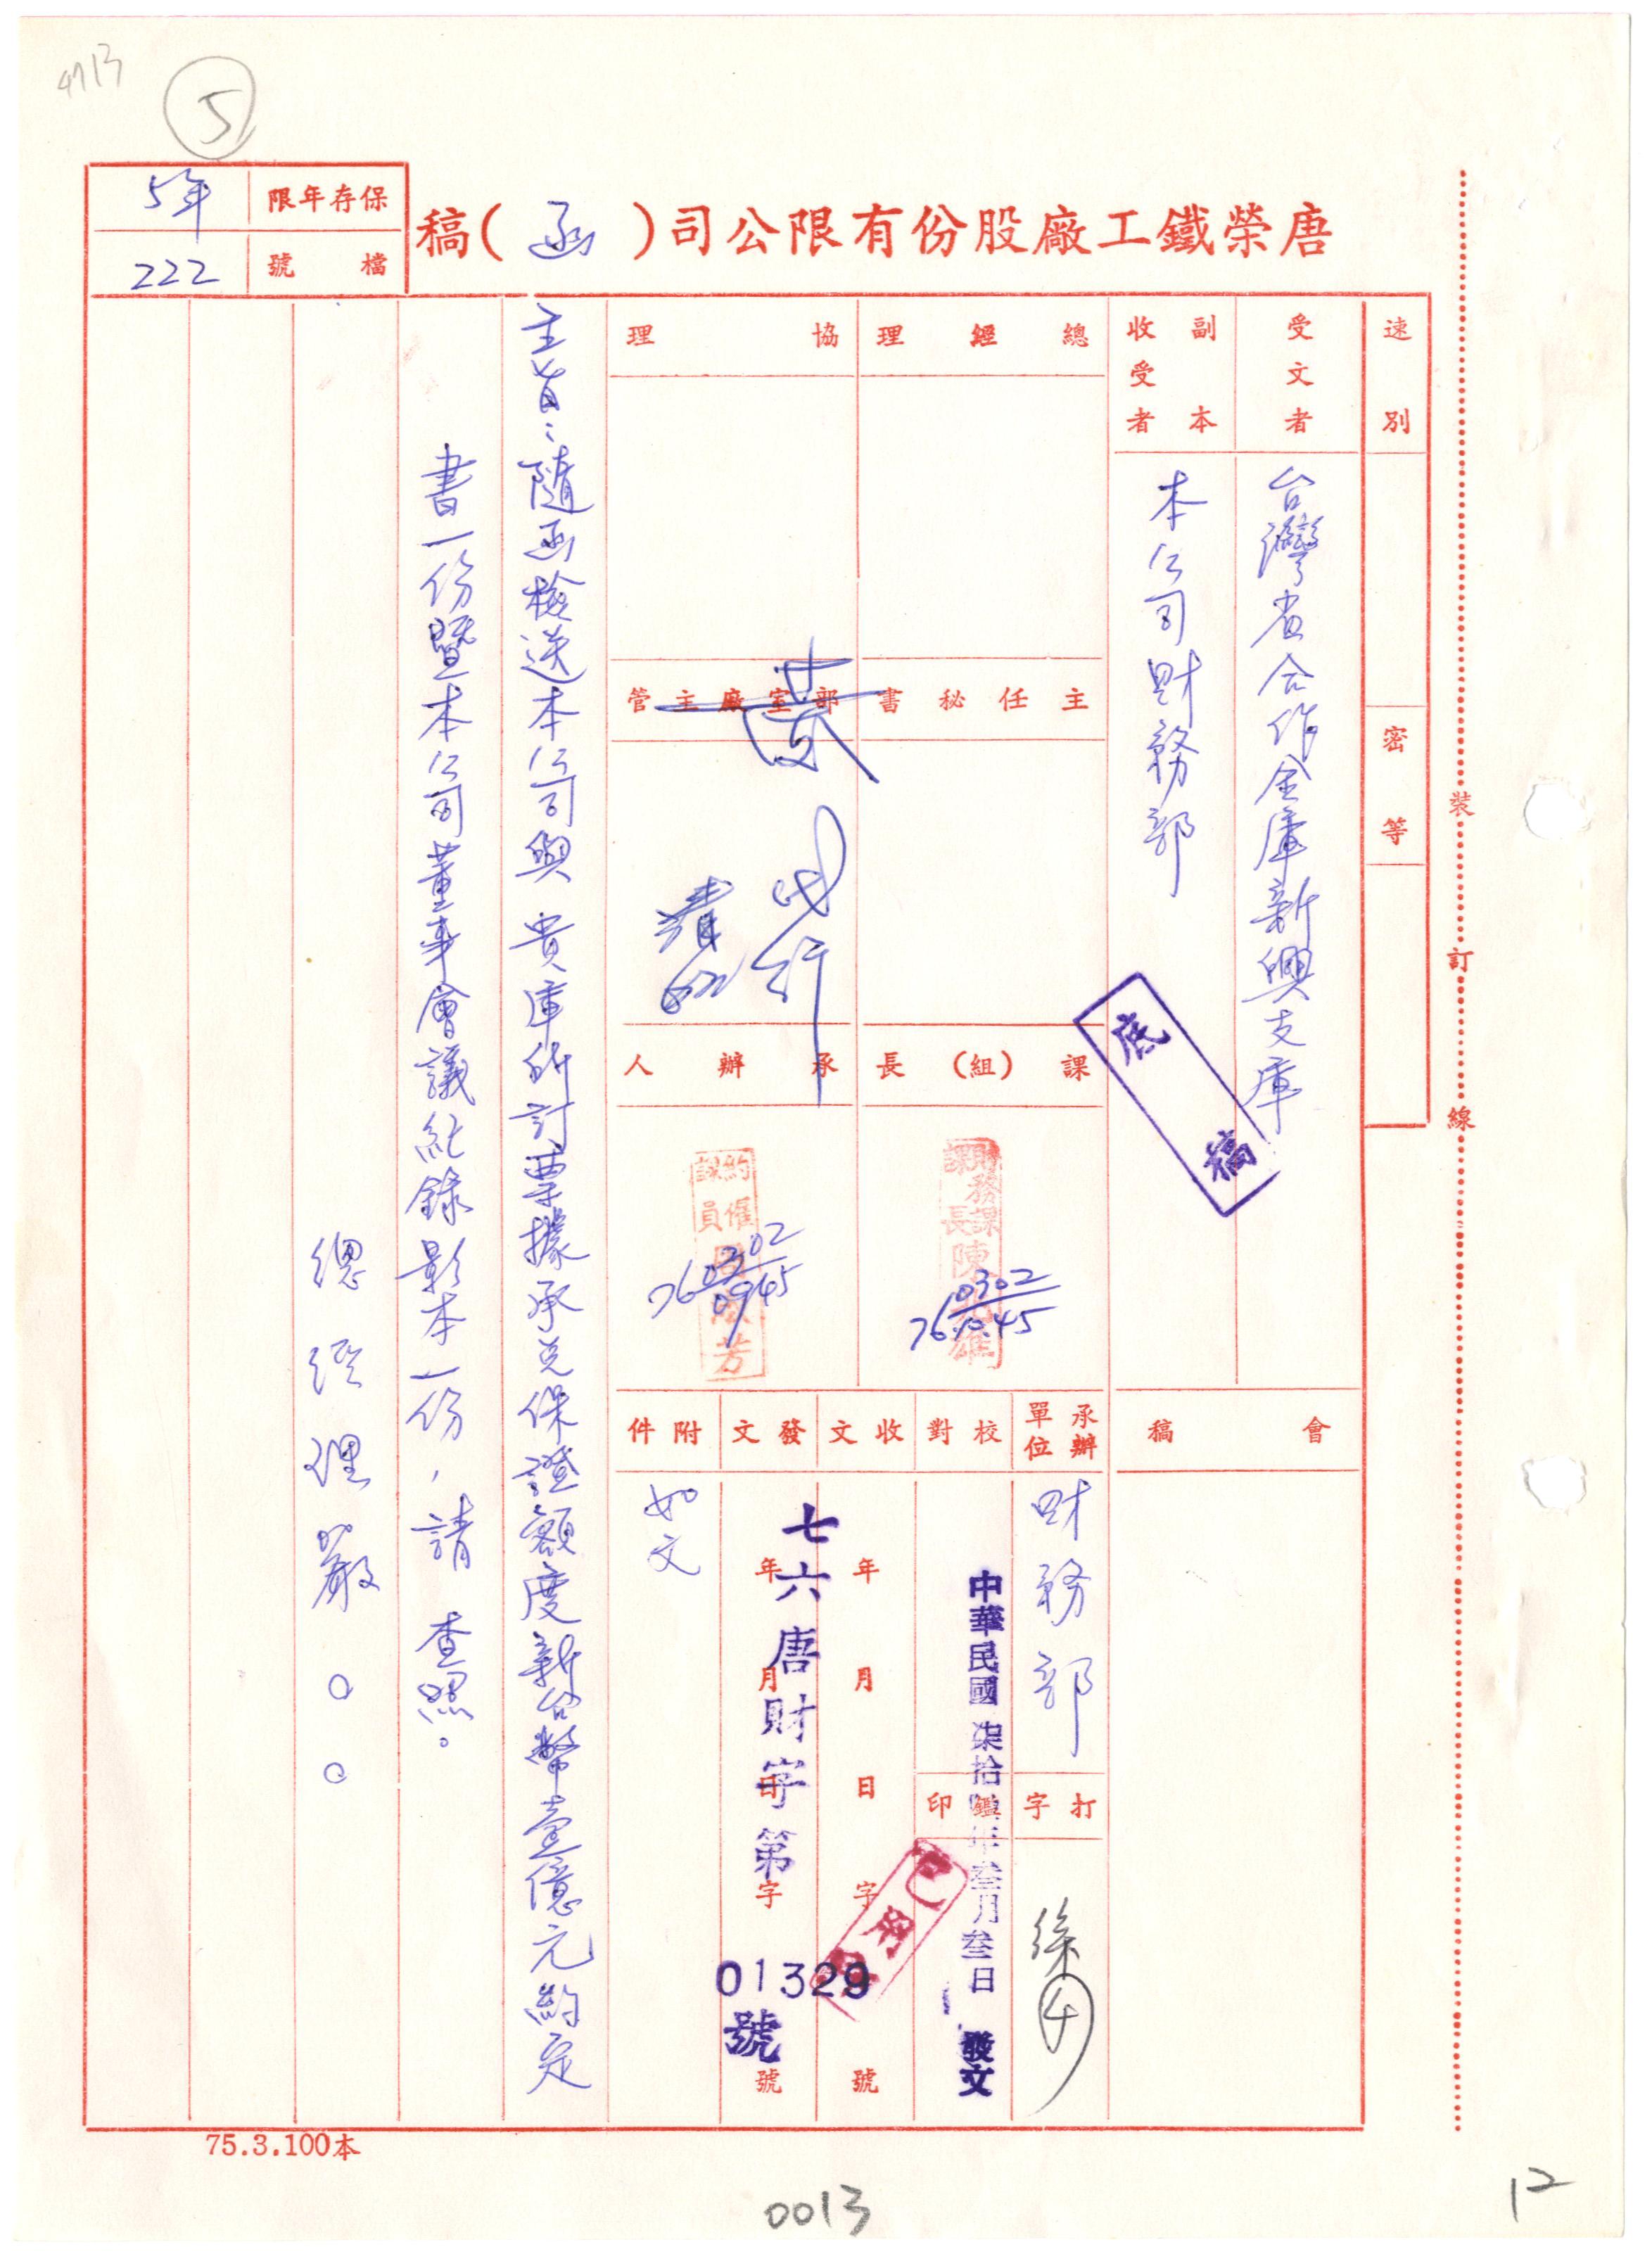 4713
5
保存年限
5年
檔號
222
唐榮鐵工廠股份有限公司(函)稿
速別
密等
受文者
台灣省合作金庫新興支庫
副本收受者
本公司財務部
底稿
會稿
總經理
協理
主任秘書
部室廠主管
黃
代行
課(組)長
財務課課長陳
76 0302 10.45
承辦人
約僱課員
芳
76 0302 0945
承辦單位
財務部
打字
徐
校對
監印
中華民國柒拾 年叁月叁日 發文
收文
年月日字號
已用印
發文
年月日字號
七六唐財字第
01329
號
附件
如文
主旨：隨函檢送本公司與 貴庫所訂票據承兌保證額度新台幣壹億元約定
書一份暨本公司董事會議紀錄影本一份，請 查照。
總經理嚴○○
裝訂線
75.3.100本
0013
12